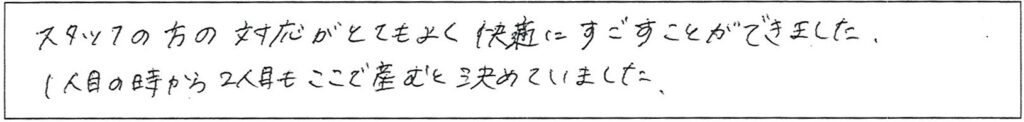 スタッフの方の対応がとてもよく快適にすごすことができました.
1人目の時から2人目もここで産むと決めていました.